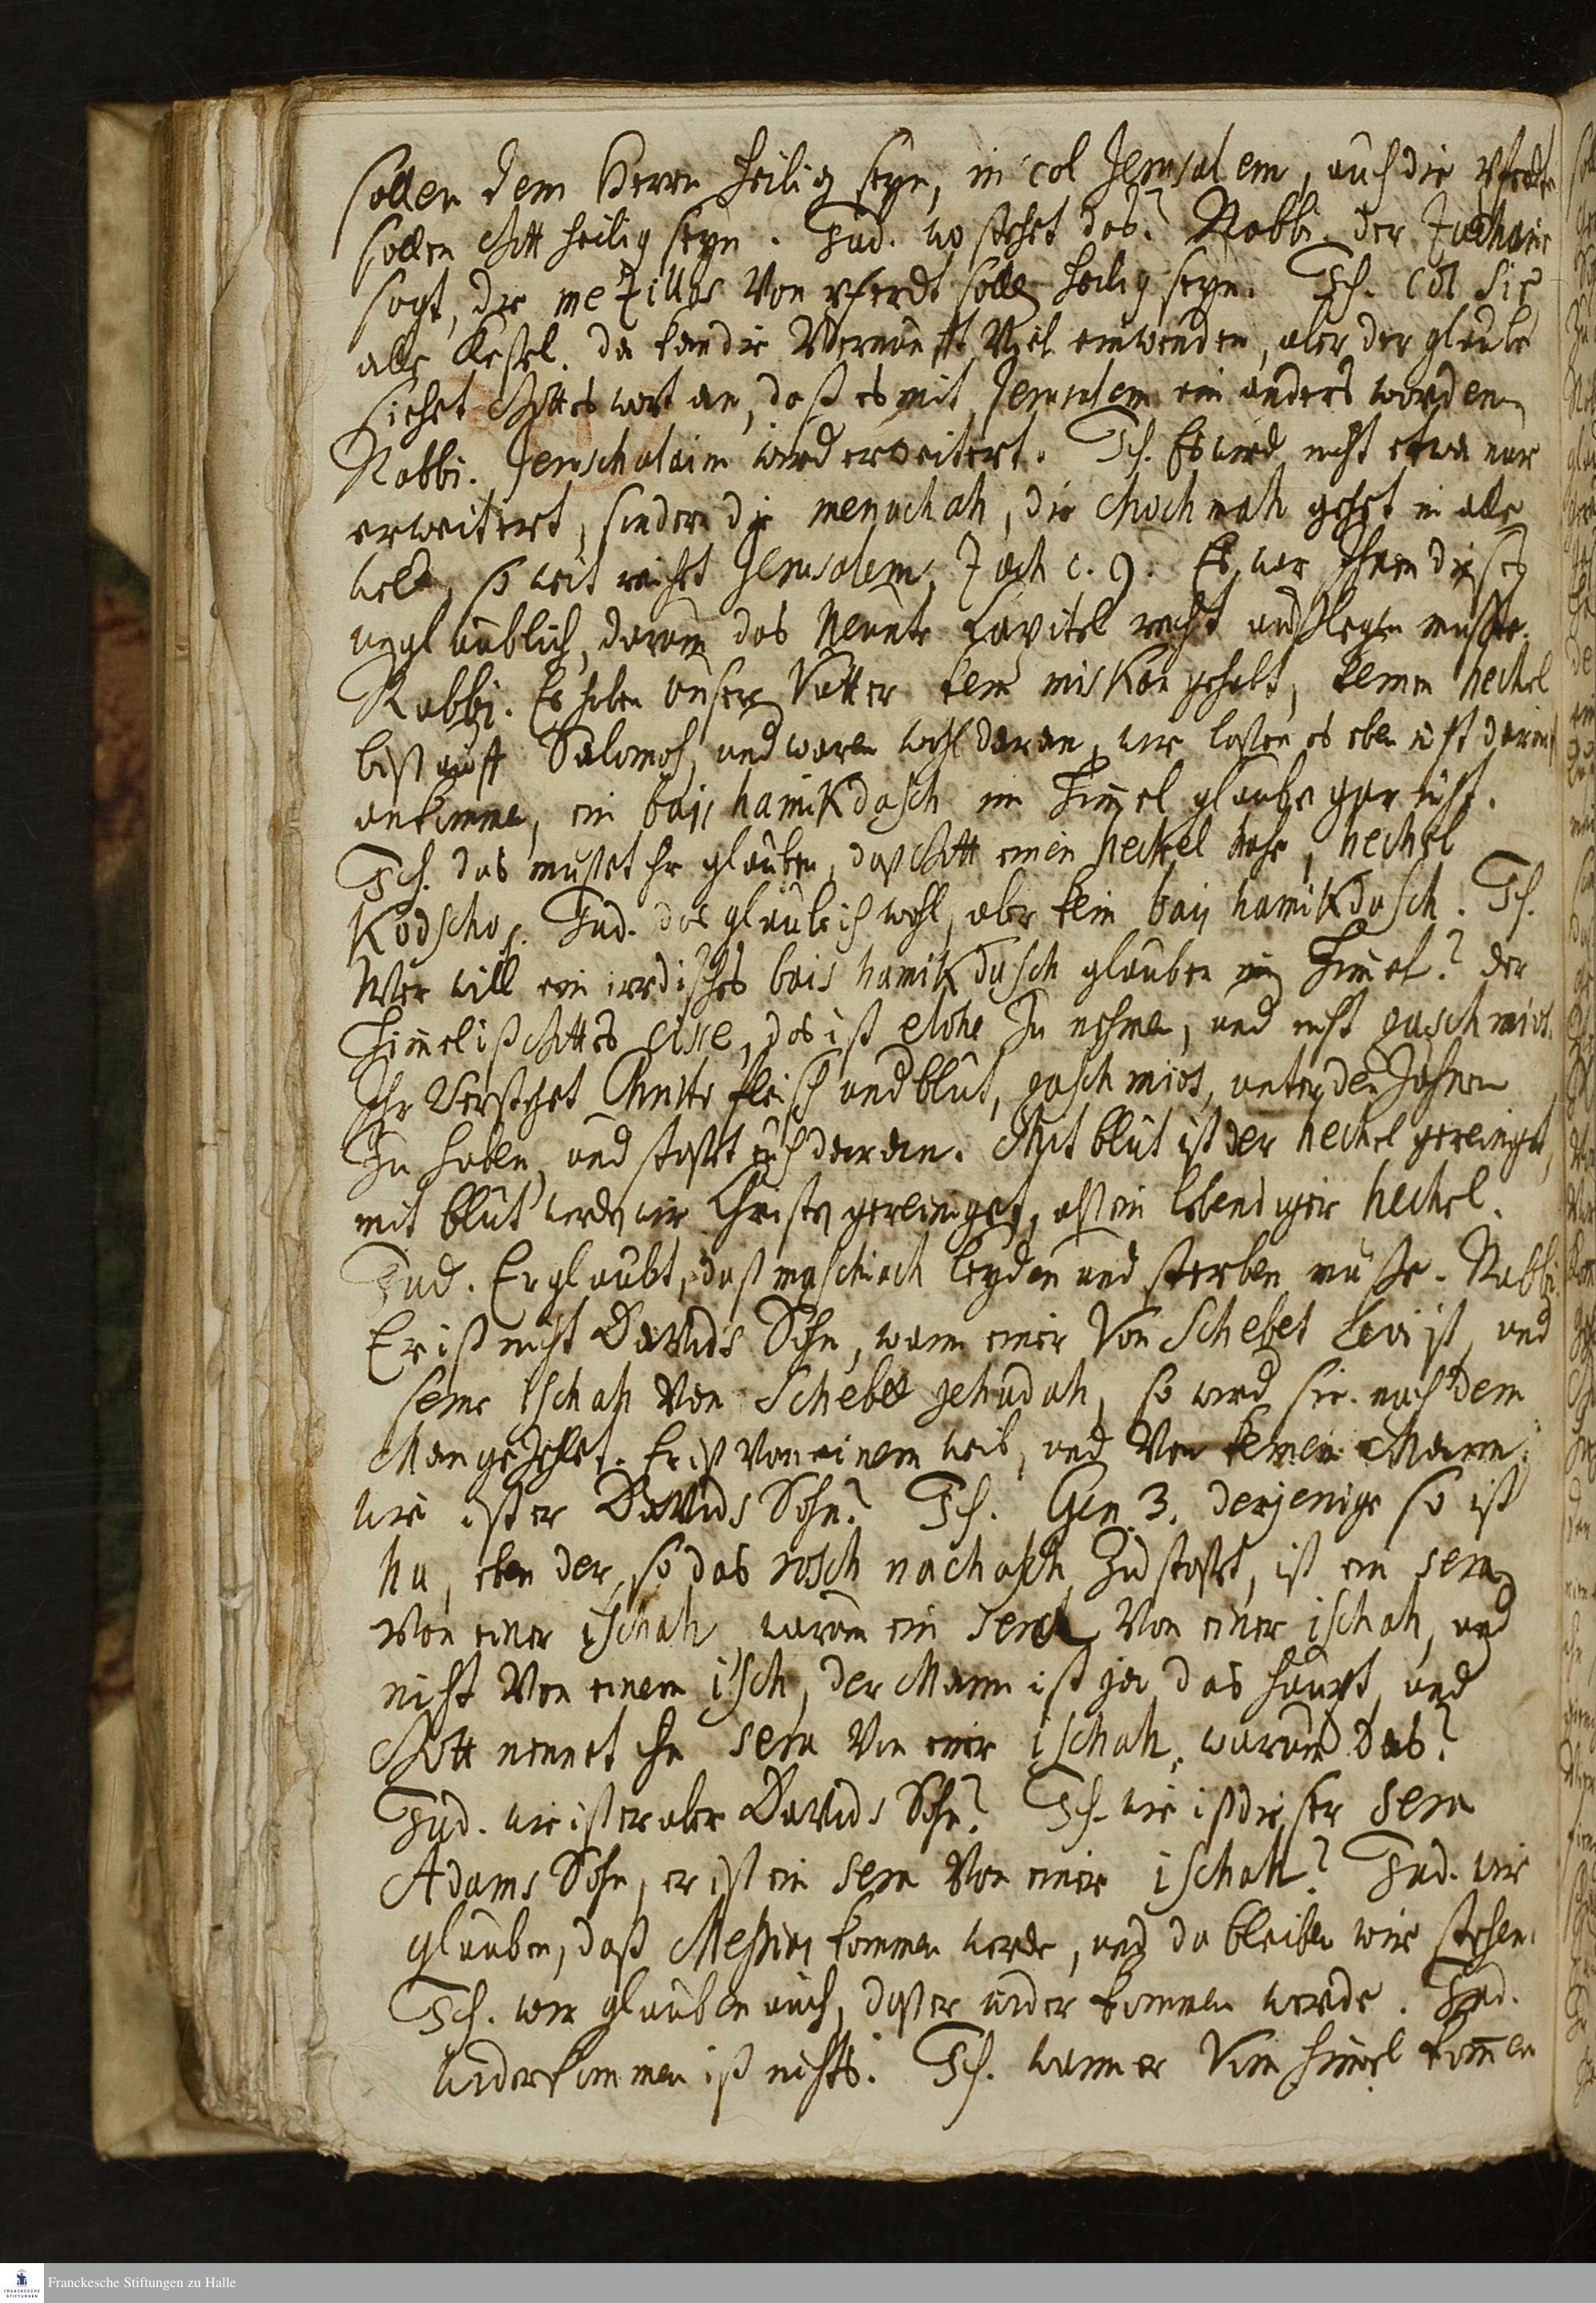 sollen dem Herrn heilig seyn, in col Jerusalem, auch die Pferdte
sollen Gott heilig seyn. Jud. wo stehet das? Rabbi. der Juchanie
sagt, die mezillos von Pferdt solle heilig seyn. Ich. col sir
alle Keßel. da kan die Vernunfft viel einwenden, aber der glaube
siehet Gottes wort an, daß es mit Jerusalem ein anders worden.
Rabbi. Jeruschalaim wird erweitert. Ich. Es wird nicht etwa nur
erweitert, sondern die menuchah, die chochmah gehet in alle
welt, so weit reichet Jerusalem, Zach c. 9. Es war Ihnen dieses
unglaublich, darum das Neunte Capitel recht außlegen muste.
Rabbi. Es haben unsere Vätter kein miskan gehabt, keinen hechel
biß auff Salomoh, und waren wohl daran, wir laßen es eben nicht darauf
ankommen, ein bajs hamikdasch im Himmel glaube gar nicht.
Ich. das mußet ihr glauben, daß Gott einen hechel habe, hechel
Kodscho. Jud. das glaube ich wohl, aber kein baij hamikdasch. Ich.
Wer will ein irrdisches bais hamikdasch glauben im Himmel? der
Himmel ist Gottes cisse, das ist elohe zu nehmen, und nicht gaschmios.
Ihr verstehet Christi fleisch und blut, gaschmios, unter den Zähnen
zu haben, und stoßet euch daran. Mit blut ist der hechel gereiniget,
mit blut werden wir Christen gereiniget, alß ein lebendiger hechel.
Jud. Er glaubt, daß maschiach leyden und sterben müße. Rabbi.
Er ist nicht Davids Sohn, wann einer von Schebet Levi ist, und
seine ischah von Schebet jehudah, so wird sie nach dem
Man gezehlet. Er ist von einem weib, und von keinem Mann;
wie ist er Davids Sohn? Ich. Gen. 3. derjenige so ist
hu, eben der, so das rosch nachasch zustoßet, ist ein sera
von einer ischah, warum ein sera von einer ischah, und
nicht von einem isch, der Mann ist ja das haupt, und
Gott nennet ihn sera von einer ischah, warum das?
Jud. wie ist er aber Davids Sohn? Ich. wie ist dieser sera
Adams Sohn, er ist ein sera von einer ischah? Jud. wir
glauben, daß Messias kommen werde, und da bleiben wir stehen.
Ich. wir glauben auch, daß er wider kommen werde. Jud.
widerkommen ist nichts. Ich. wann er vom himmel kommen
Franckesche Stiftungen zu Halle